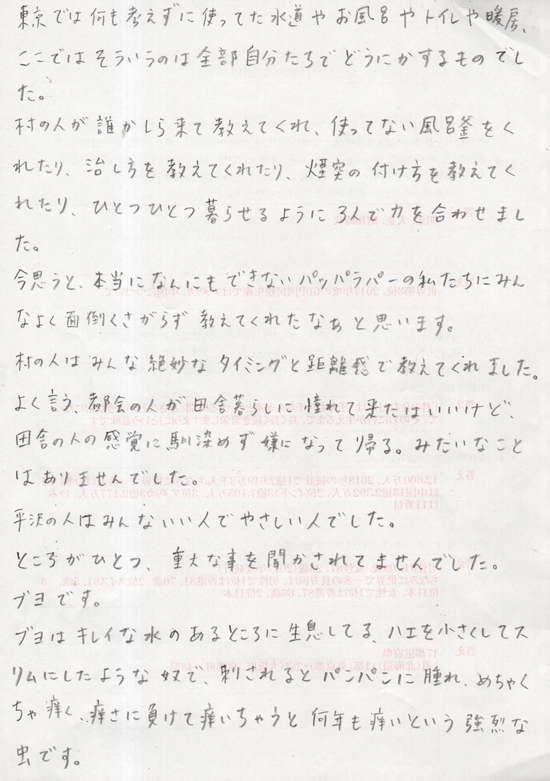 東京では何も考えずに使ってた水道やお風呂やトイレや暖房、
ここではそういうのは全部自分たちでどうにかするものでし
た。
村の人が誰かしら来て教えてくれ、使ってない風呂釜をく
れたり、治し方を教えてくれたり、煙突の付け方を教えてく
れたり、ひとつひとつ暮らせるように3人で力を合わせまし
た。
今思うと、本当になんにもできないパッパラパーの私たちにみん
なよく面倒くさがらず教えてくれたなあと思います。
村の人はみんな絶妙なタイミングと距離感で教えてくれました。
よく言う、都会の人が田舎暮らしに憧れて来たはいいけど、
田舎の人の感覚に馴染めず嫌になって帰る。みたいなこと
はありませんでした。
平沢の人はみんないい人でやさしい人でした。
ところがひとつ、重大な事を聞かされてませんでした。
ブヨです。
ブヨはキレイな水のあるところに生息してる、ハエを小さくしてス
リムにしたような奴で、刺されるとパンパンに腫れ、めちゃく
ちゃ痒く、痒さに負けて痒いちゃうと何年も痒いという強烈な
虫です。